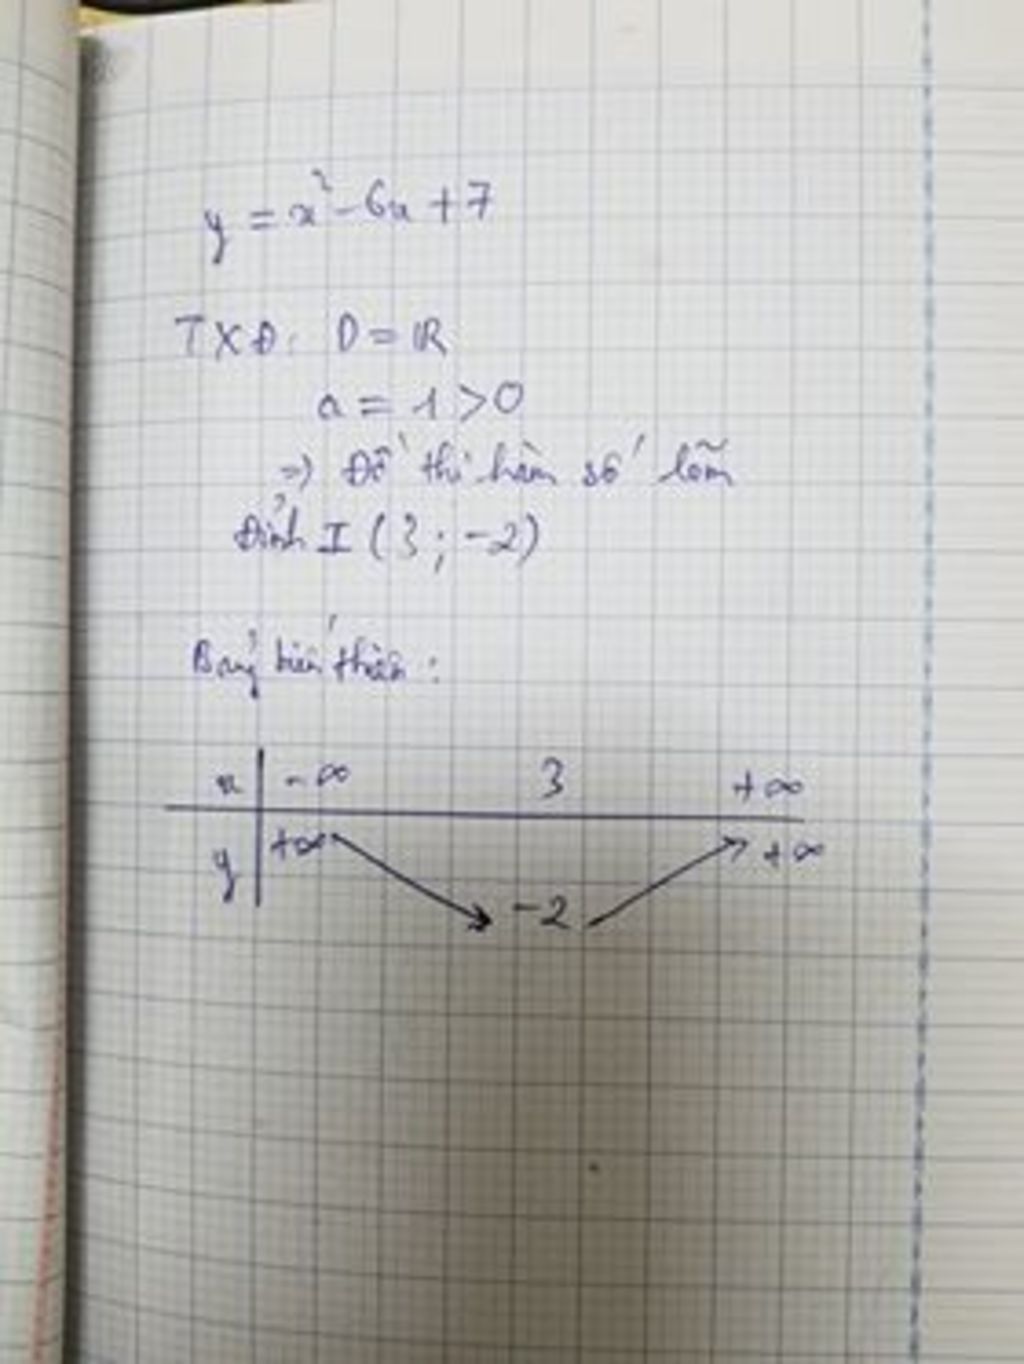 y = x² - 6x + 7
TXĐ: D = ℝ
a = 1 > 0
=> Đồ thị hàm số lõm
Đỉnh I (3; -2)
Bảng biến thiên:
x -∞ 3 +∞
y +∞ -2 +∞